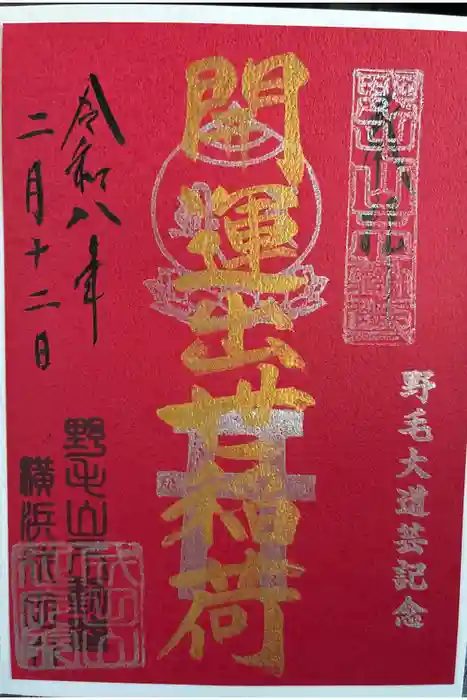 奉拝
野毛大道芸記念
開運出世稲荷
令和八年
二月十二日
野毛山不動尊
横浜成田山